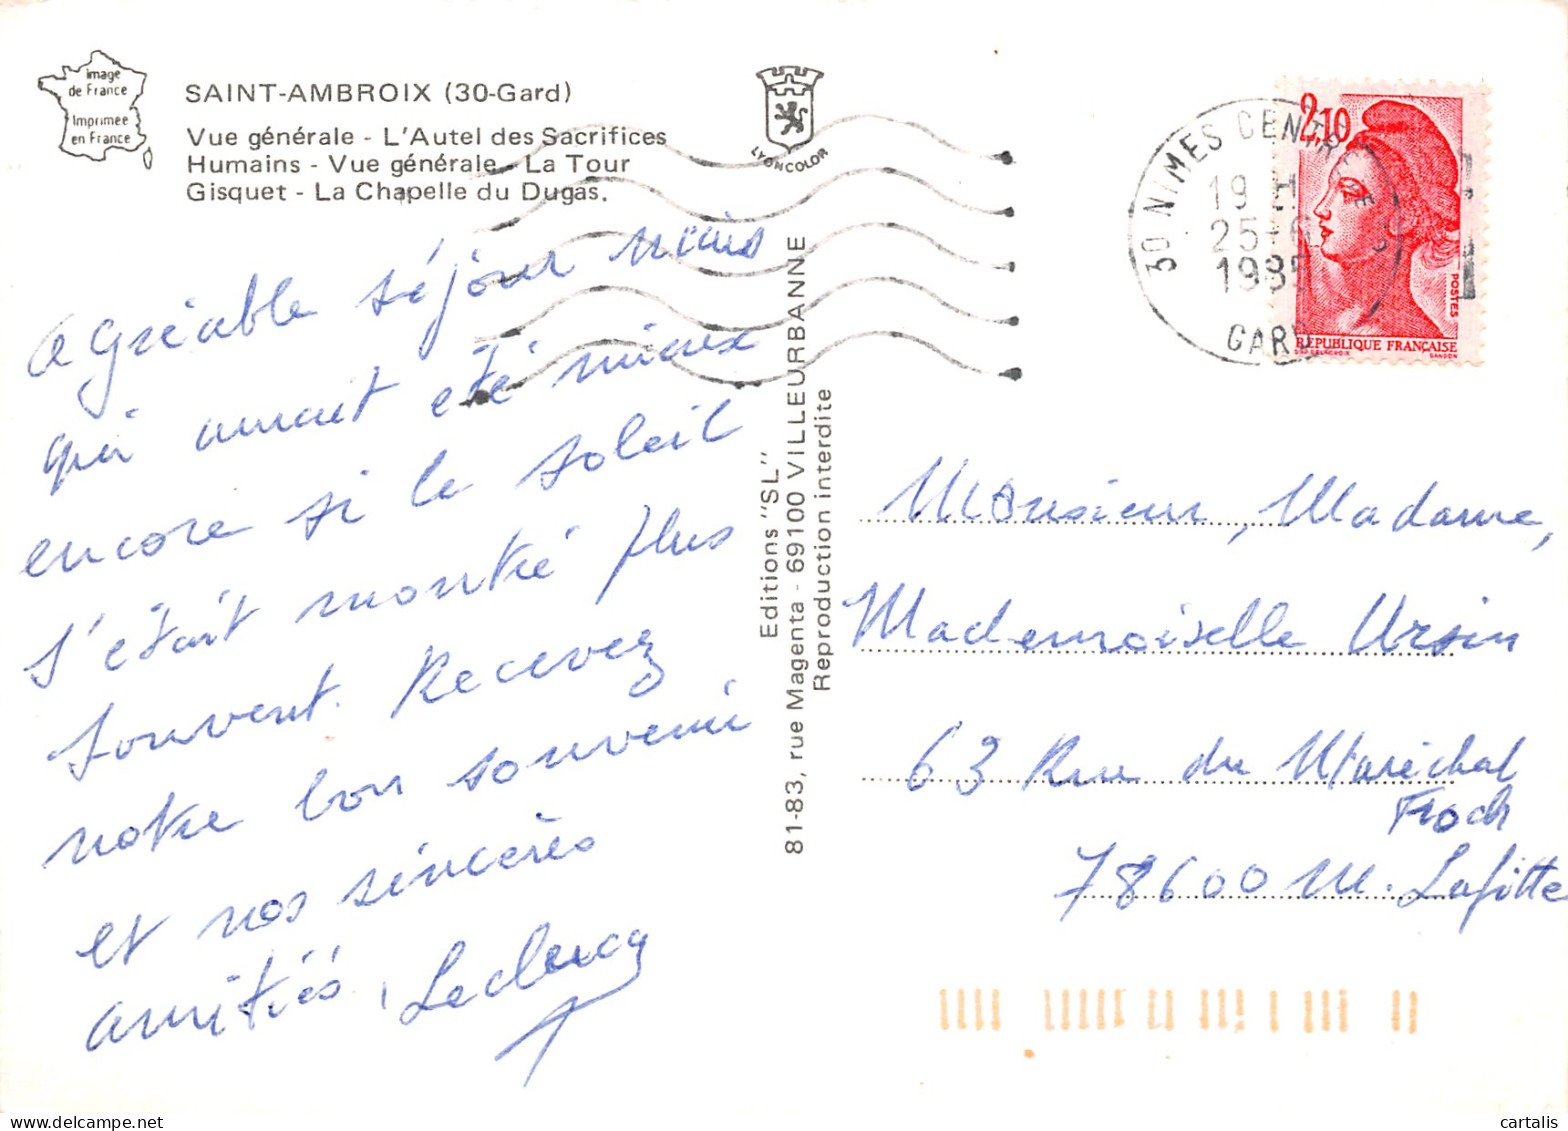 image
de France
Imprimée
en France
SAINT-AMBROIX (30-Gard)
Vue générale - L'Autel des Sacrifices
Humains - Vue générale - La Tour
Gisquet - La Chapelle du Dugas.
LYONCOLOR
agréable séjour mais
qui aurait été mieux
encore si le soleil
s'était montré plus
souvent. Recevez
notre bon souvenir
et nos sincères
amitiés, Leclercq
Editions "SL"
81-83, rue Magenta - 69100 VILLEURBANNE
Reproduction interdite
30 NIMES CENTRE
19 H
25-6
1985
GARD
2,10
POSTES
REPUBLIQUE FRANÇAISE
DELACROIX
GANDON
Monsieur, Madame,
Mademoiselle Ursin
63 Rue du Maréchal
Froch
78600 M. Lafitte
cartalis